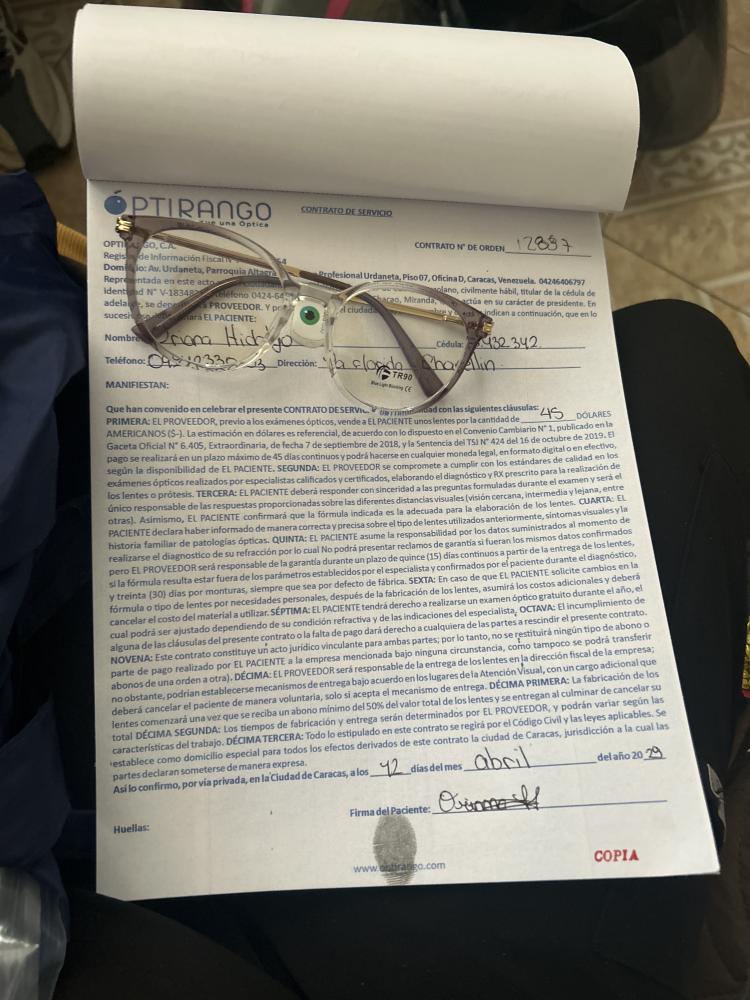 ÓPTIRANGO
CONTRATO DE SERVICIO
una Óptica
CONTRATO N° DE ORDEN
C.A.
Registro de Información Fiscal
Domicilio: Av. Urdaneta, Parroquia Altagra Profesional Urdaneta, Piso 07, Oficina D, Caracas, Venezuela. 04246406797
Representada en este acto olano, civilmente hábil, titular de la cédula de
identidad N° V-18348 teléfono 0424-64 Chacao, Miranda, actúa en su carácter de presidente. En
adelante, se de PROVEEDOR. Y por el ciudada indican a continuación, que en lo
EL PACIENTE:
Nombre Hidalgo Cédula: 432 342
Teléfono: Dirección: La Florida - Chapellin
TR90
Blue Light Blocking CE
MANIFIESTAN:
Que han convenido en celebrar el presente CONTRATO DE SERVIC con las siguientes cláusulas:
PRIMERA: EL PROVEEDOR, previo a los exámenes ópticos, vende a EL PACIENTE unos lentes por la cantidad de 45 DÓLARES
AMERICANOS (S-). La estimación en dólares es referencial, de acuerdo con lo dispuesto en el Convenio Cambiario N° 1, publicado en la
Gaceta Oficial N° 6.405, Extraordinaria, de fecha 7 de septiembre de 2018, y la Sentencia del TSJ N° 424 del 16 de octubre de 2019. El
pago se realizará en un plazo máximo de 45 días continuos y podrá hacerse en cualquier moneda legal, en formato digital o en efectivo,
según la disponibilidad de EL PACIENTE. SEGUNDA: EL PROVEEDOR se compromete a cumplir con los estándares de calidad en los
exámenes ópticos realizados por especialistas calificados y certificados, elaborando el diagnóstico y RX prescrito para la realización de
los lentes o prótesis. TERCERA: EL PACIENTE deberá responder con sinceridad a las preguntas formuladas durante el examen y será el
único responsable de las respuestas proporcionadas sobre las diferentes distancias visuales (visión cercana, intermedia y lejana, entre
otras). Asimismo, EL PACIENTE confirmará que la fórmula indicada es la adecuada para la elaboración de los lentes. CUARTA: EL
PACIENTE declara haber informado de manera correcta y precisa sobre el tipo de lentes utilizados anteriormente, síntomas visuales y la
historia familiar de patologías ópticas. QUINTA: EL PACIENTE asume la responsabilidad por los datos suministrados al momento de
realizarse el diagnostico de su refracción por lo cual No podrá presentar reclamos de garantía si fueran los mismos datos confirmados
pero EL PROVEEDOR será responsable de la garantía durante un plazo de quince (15) días continuos a partir de la entrega de los lentes,
si la fórmula resulta estar fuera de los parámetros establecidos por el especialista y confirmados por el paciente durante el diagnóstico,
y treinta (30) días por monturas, siempre que sea por defecto de fábrica. SEXTA: En caso de que EL PACIENTE solicite cambios en la
fórmula o tipo de lentes por necesidades personales, después de la fabricación de los lentes, asumirá los costos adicionales y deberá
cancelar el costo del material a utilizar. SÉPTIMA: EL PACIENTE tendrá derecho a realizarse un examen óptico gratuito durante el año, el
cual podrá ser ajustado dependiendo de su condición refractiva y de las indicaciones del especialista. OCTAVA: El incumplimiento de
alguna de las cláusulas del presente contrato o la falta de pago dará derecho a cualquiera de las partes a rescindir el presente contrato.
NOVENA: Este contrato constituye un acto jurídico vinculante para ambas partes; por lo tanto, no se restituirá ningún tipo de abono o
parte de pago realizado por EL PACIENTE a la empresa mencionada bajo ninguna circunstancia, como tampoco se podrá transferir
abonos de una orden a otra). DÉCIMA: EL PROVEEDOR será responsable de la entrega de los lentes en la dirección fiscal de la empresa;
no obstante, podrían establecerse mecanismos de entrega bajo acuerdo en los lugares de la Atención Visual, con un cargo adicional que
deberá cancelar el paciente de manera voluntaria, solo si acepta el mecanismo de entrega. DÉCIMA PRIMERA: La fabricación de los
lentes comenzará una vez que se reciba un abono mínimo del 50% del valor total de los lentes y se entregan al culminar de cancelar su
total DÉCIMA SEGUNDA: Los tiempos de fabricación y entrega serán determinados por EL PROVEEDOR, y podrán variar según las
características del trabajo. DÉCIMA TERCERA: Todo lo estipulado en este contrato se regirá por el Código Civil y las leyes aplicables. Se
establece como domicilio especial para todos los efectos derivados de este contrato la ciudad de Caracas, jurisdicción a la cual las
partes declaran someterse de manera expresa.
Así lo confirmo, por vía privada, en la Ciudad de Caracas, a los 12 días del mes abril del año 20
Firma del Paciente:
Huellas:
www.optirango.com
COPIA